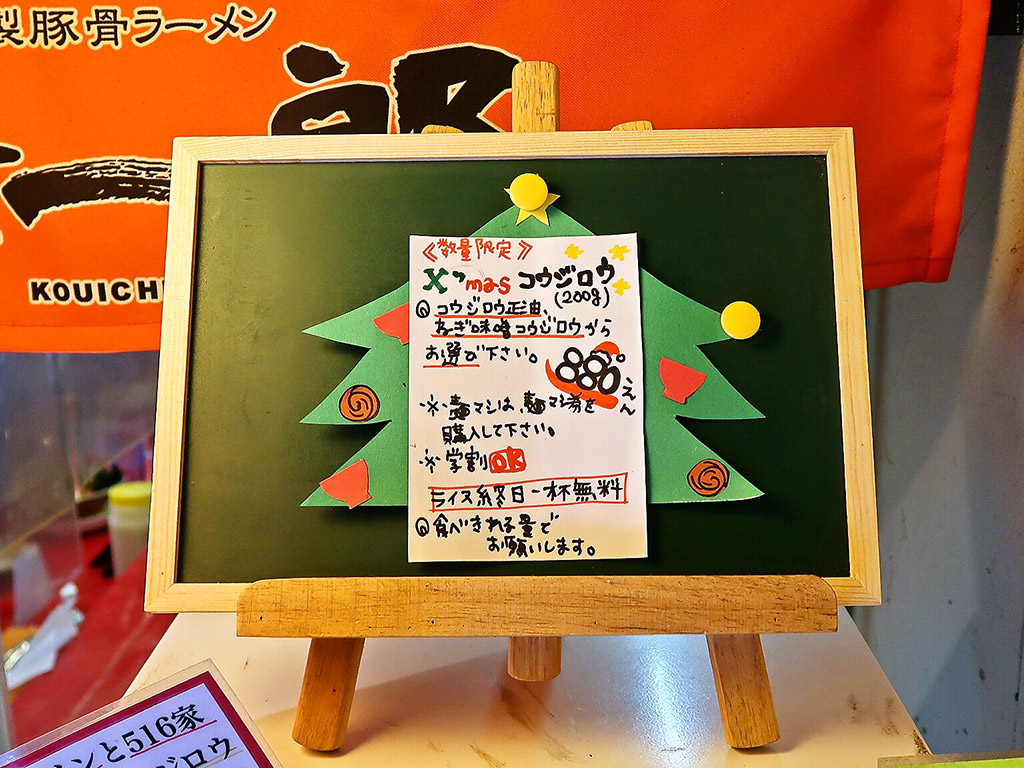 製豚骨ラーメン
一郎
KOUICHI
《数量限定》
X'mas コウジロウ
(200g)
◎コウジロウ正油、
ねぎ味噌コウジロウから
お選び下さい。
880えん
※麺マシは、麺マシ券を
購入して下さい。
※学割OK
ライス終日一杯無料
◎食べきれる量で
お願いします。
と516家
ジロウ